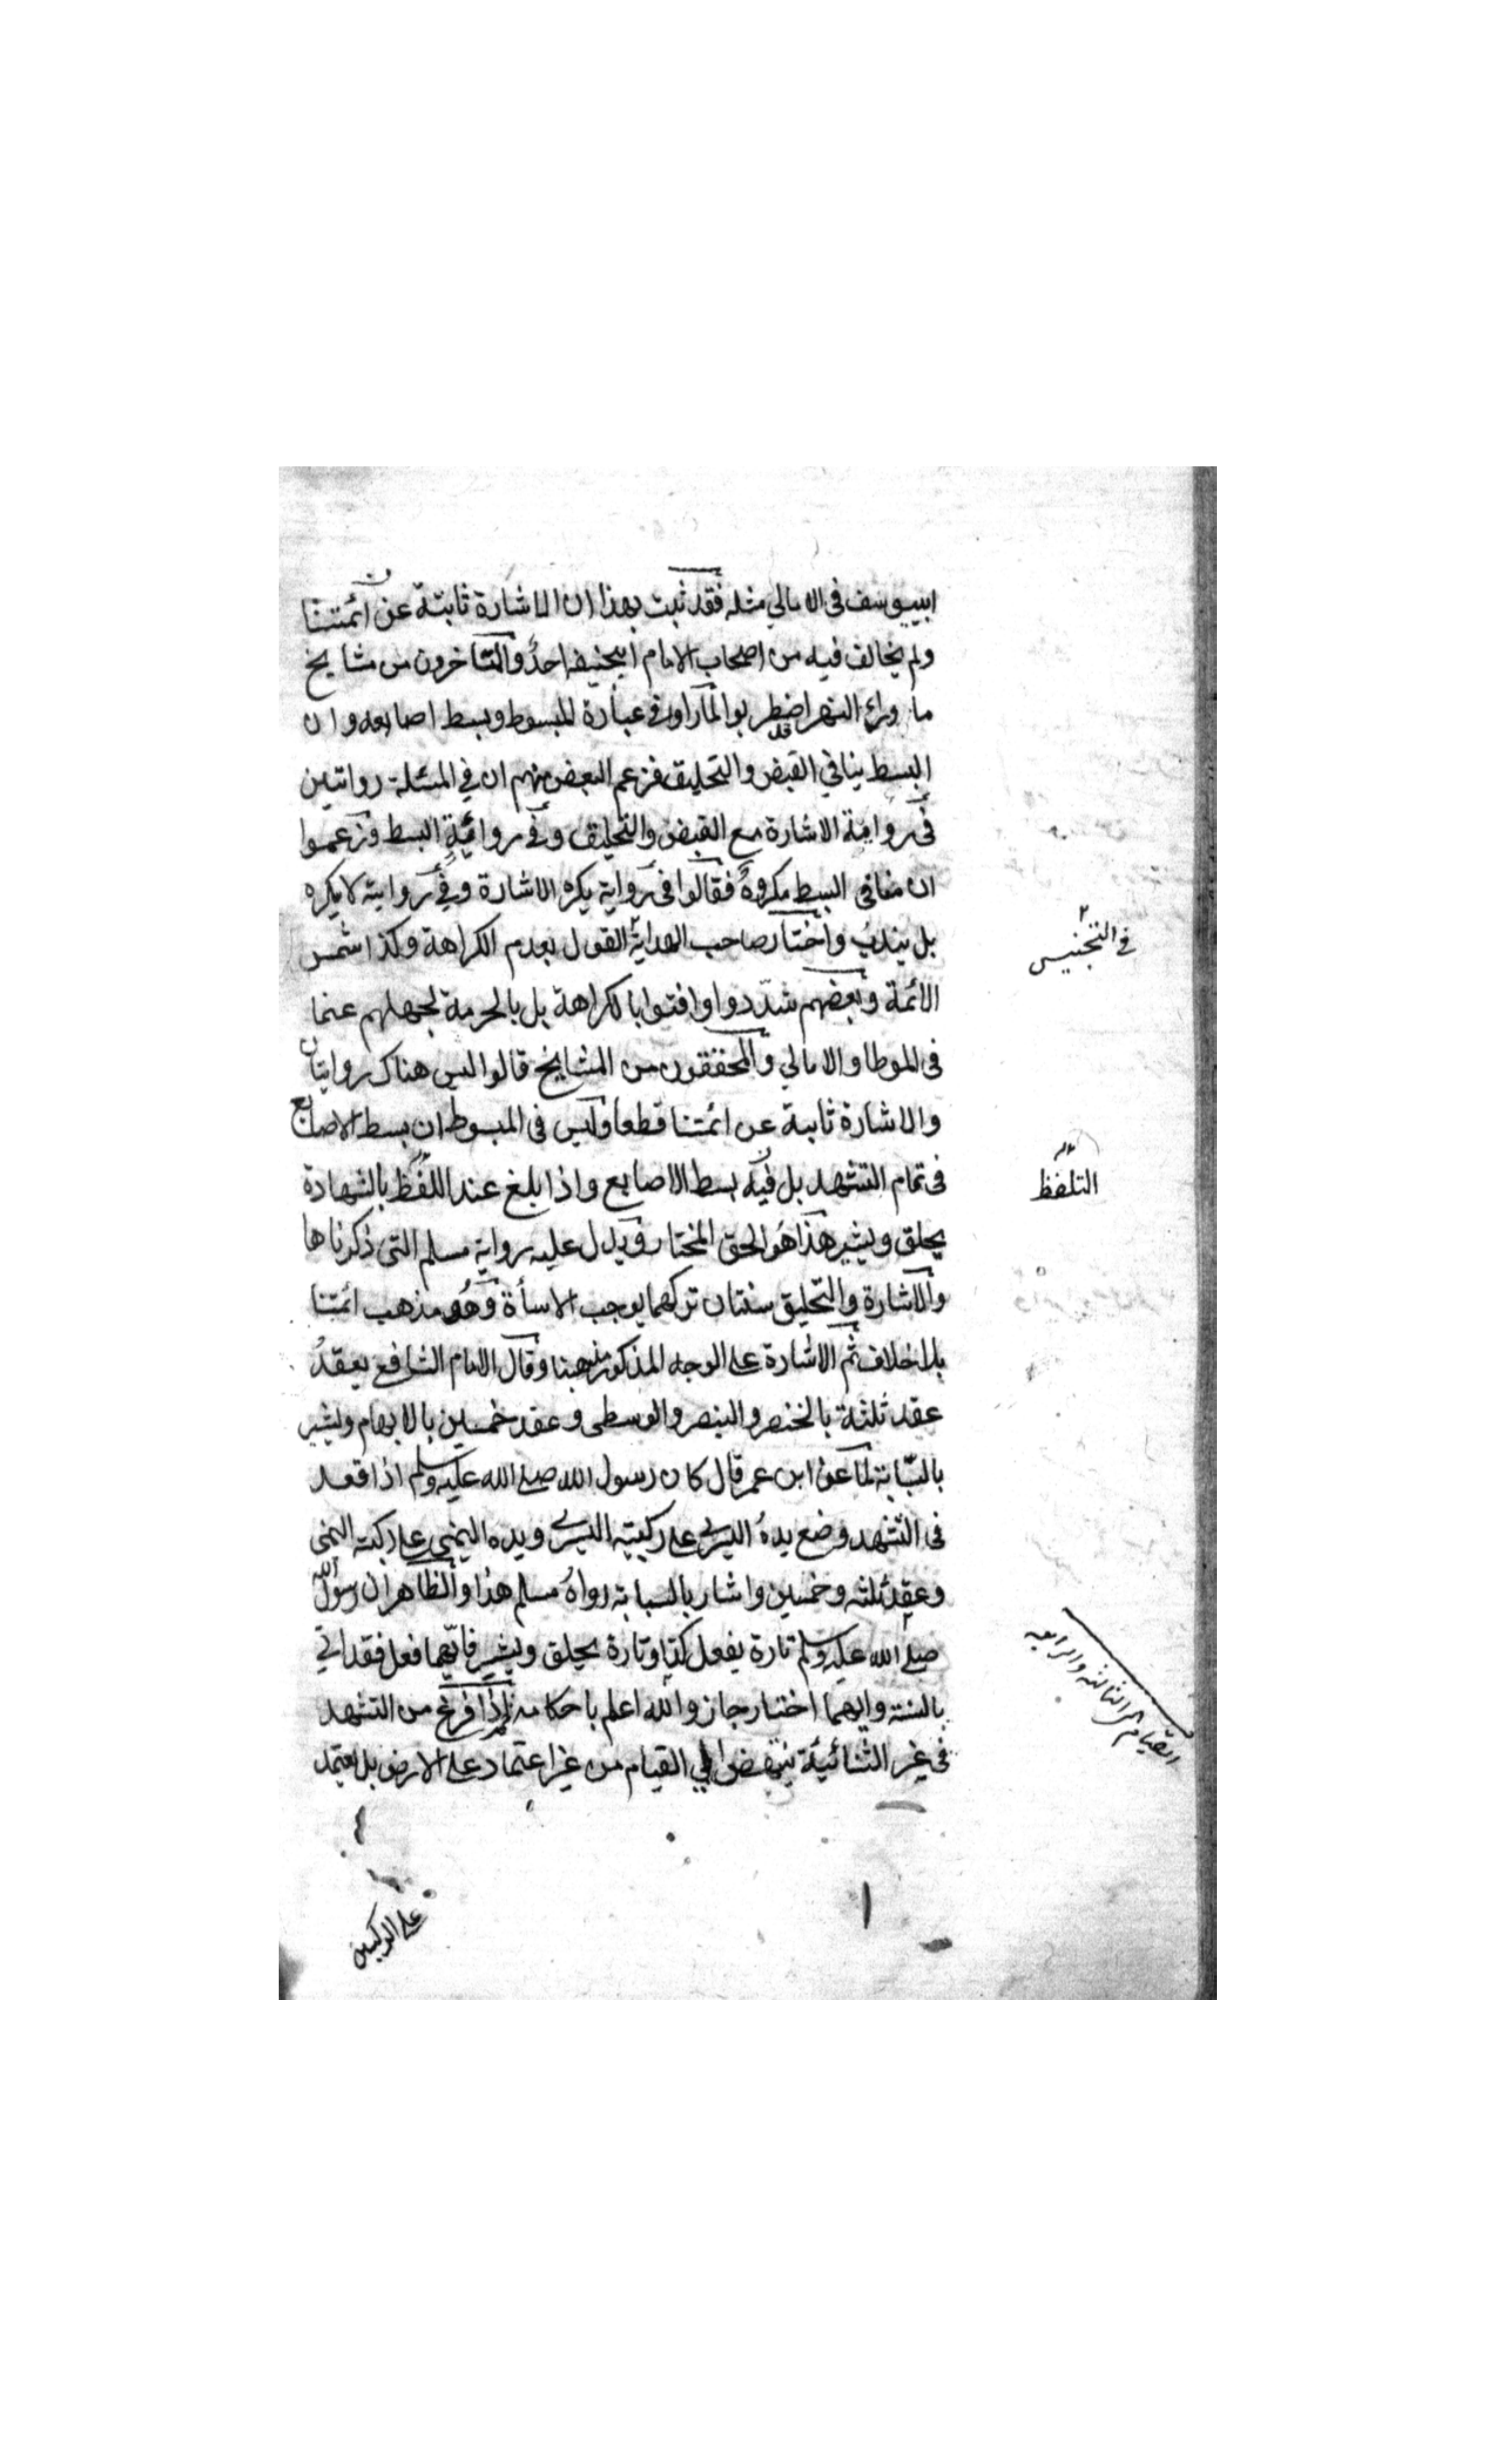 ابييوسف فى الامالي مثله فقد ثبت بهذا ان الاشارة ثابتة عن ائمتنا
ولم يخالف فيه من اصحاب الامام ابيحنيفه احد والمتاخرون من مشايخ
ما وراء النهر اضطربوا لما راوا فى عبارة المبسوط وبسط اصابعه وان
البسط ينافي القبض والتحليق فزعم البعض منهم ان في المسئلة روايتين
فى رواية الاشارة مع القبض والتحليق وفى رواية البسط وزعموا
ان منافى البسط مكروه فقالوا فى رواية يكره الاشارة وفي رواية لا يكره
بل يندب واختار صاحب الهداية القول بعدم الكراهة وكذا شمس
فى التجنيس
الائمة وبعضهم شددوا وافتوا بالكراهة بل بالحرمة لجهلهم عنما
فى الموطا والامالي والمحققون من المشايخ قالوا ليس هناك روايتان
والاشارة ثابتة عن ائمتنا قطعا وليس فى المبسوط ان بسط الاصابع
فى تمام التشهد بل فيه بسط الاصابع واذا بلغ عند اللفظ بالشهادة
التلفظ
يحلق ويشير هذا هو الحق المختار ويدل عليه رواية مسلم التى ذكرناها
والاشارة والتحليق سنتان تركهما يوجب الاسأة وهو مذهب ائمتنا
بلا خلاف ثم الاشارة على الوجه المذكور مذهبنا وقال الامام الشافع يعقد
عقد ثلثة بالخنصر والبنصر والوسطى وعقد خمسين بالابهام ويشير
بالسبابة لما عن ابن عمر قال كان رسول الله صلى الله عليه وسلم اذا قعد
فى التشهد وضع يده اليسرى على ركبتيه اليسرى ويده اليمنى على ركبته اليمنى
وعقد ثلثه وخمسين واشار بالسبابة رواه مسلم هذا والظاهر ان رسول الله
صلى الله عليه وسلم تارة يفعل كذا وتارة يحلق ويشير فايهما فعل فقد اتى
بالسنة وايهما اختار جاز والله اعلم باحكامه اذا فرغ من التشهد
القيام الى الثالثه والرابعه
فى غير الثنائية ينهض الي القيام من غير اعتماد على الارض بل يعتمد
على الركبتين